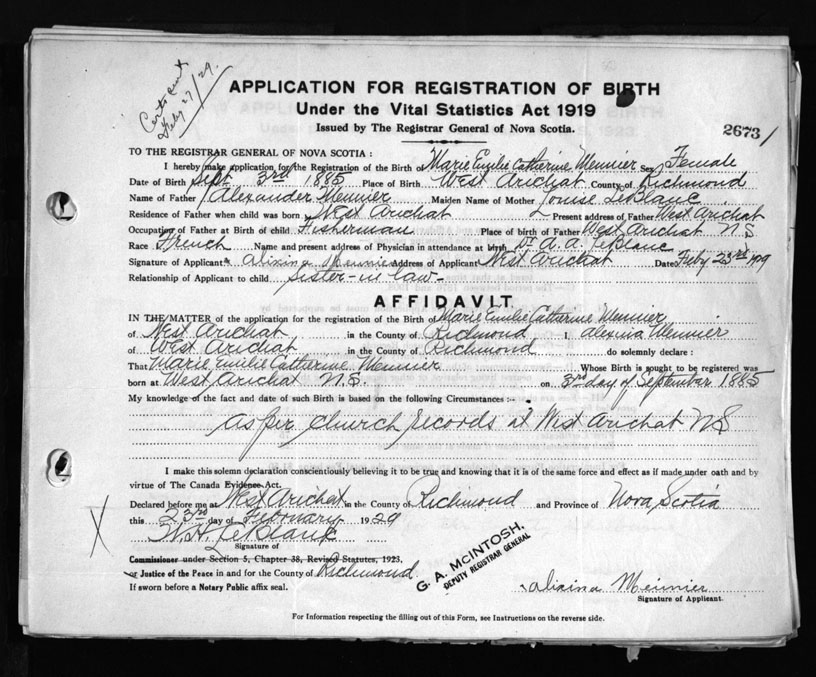 Cert. sent
Feby 27/29.
APPLICATION FOR REGISTRATION OF BIRTH
Under the Vital Statistics Act 1919
Issued by The Registrar General of Nova Scotia.
2673/
TO THE REGISTRAR GENERAL OF NOVA SCOTIA:
I hereby make application for the Registration of the Birth of Marie Emilie Catherine Mennier Sex Female
Date of Birth Sept 3rd 1885 Place of Birth West Arichat County of Richmond
Name of Father Alexander Mennier Maiden Name of Mother Louise LeBlanc
Residence of Father when child was born West Arichat Present address of Father West Arichat
Occupation of Father at Birth of child Fisherman Place of Birth of Father West Arichat N.S
Race French Name and present address of Physician in attendance at birth Dr A. A. LeBlanc
Signature of Applicant Alixina Mennier Address of Applicant West Arichat Date Feby 23rd 1929
Relationship of Applicant to child Sister-in law-
AFFIDAVIT
IN THE MATTER of the application for the registration of the Birth of Marie Emilie Catherine Mennier
of West Arichat in the County of Richmond I, Alexina Mennier
of West Arichat in the County of Richmond do solemnly declare:
That Marie Emilie Catherine Mennier Whose Birth is sought to be registered was
born at West Arichat N.S. on 3rd day of September 1885
My knowledge of the fact and date of such Birth is based on the following Circumstances:-
As per Church records at West Arichat N.S
I make this solemn declaration conscientiously believing it to be true and knowing that it is of the same force and effect as if made under oath and by
virtue of The Canada Evidence Act.
Declared before me at West Arichat in the County of Richmond and Province of Nova Scotia
this 23rd day of February 1929
LeBlanc
Signature of
Commissioner under Section 5, Chapter 38, Revised Statutes, 1923,
or Justice of the Peace in and for the County of Richmond
If sworn before a Notary Public affix seal.
G. A. McINTOSH,
DEPUTY REGISTRAR GENERAL
Alixina Mennier
Signature of Applicant.
For Information respecting the filling out of this Form, see Instructions on the reverse side.